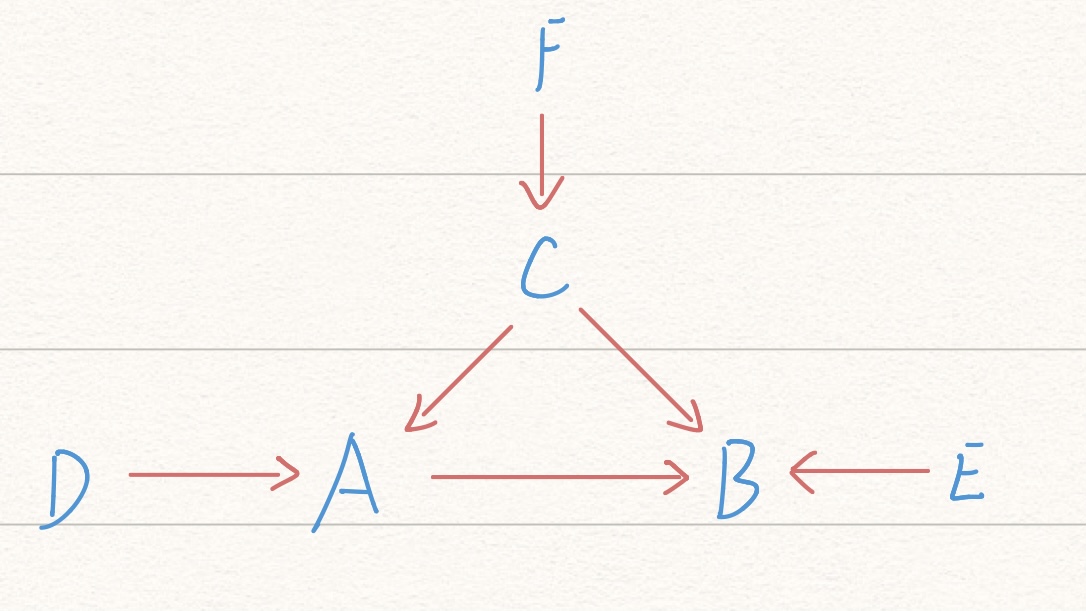 F
C
D A B E